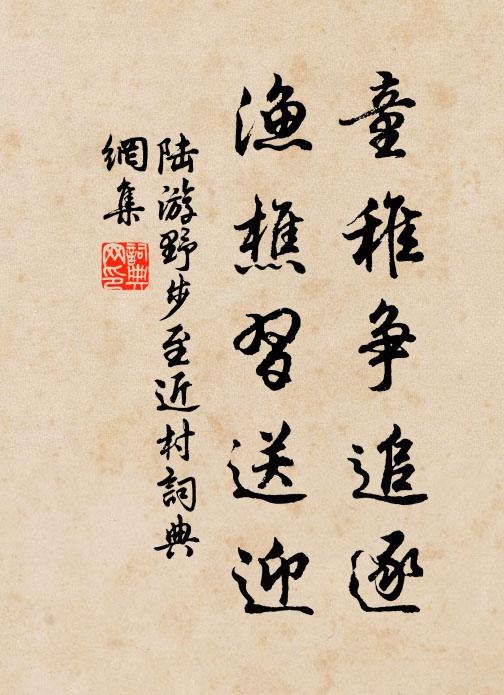 童稚争追逐
渔樵習送迎
陆游野步至近村詞典
網集
詞典
网印